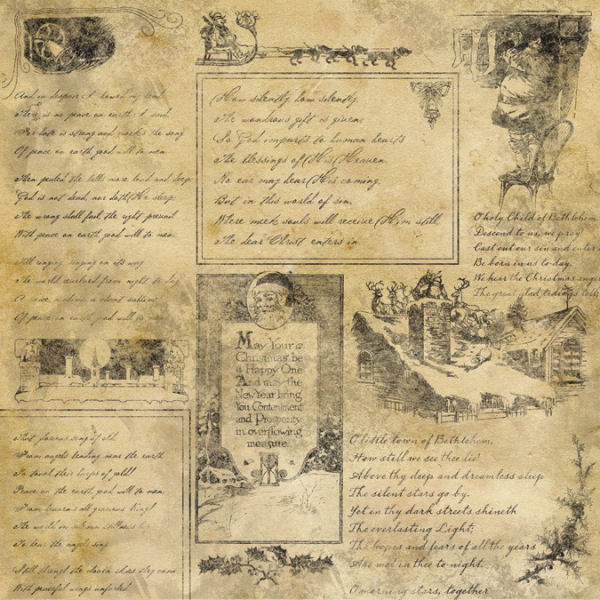 And in despair I bowed my head
There is no peace on earth, I said,
For hate is strong and mocks the song
Of peace on earth good will to men.
Then pealed the bells more loud and deep
God is not dead, nor doth He sleep
The wrong shall fail the right prevail
With peace on earth, good will to men.
Till ringing singing on its way
The world revolved from night to day
A voice
Of peace on earth, good will to
glorious song of old
From angels bending near the earth
To touch their harps of gold!
Peace on the earth, good will to men
From heaven's all gracious King!
The world in solemn stillness lay
To hear the angels sing
Still through the cloven skies they come
With peaceful wings unfurled
How silently, how silently
The wondrous gift is given;
So God imparts to human hearts
The blessings of His Heaven.
No ear may hear His coming,
But in this world of sin,
Where meek souls will receive Him still
The dear Christ enters in.
May Your
Christmas be
a Happy One
And may the
New Year bring
You Contentment
and Prosperity
in overflowing
measure.
O holy Child of Bethlehem
Descend to us, we pray
Cast out our sin and enter
Be born in us to day.
We hear the Christmas
The great glad tidings
O little town of Bethlehem,
How still we see thee lie!
Above thy deep and dreamless sleep
The silent stars go by.
Yet in thy dark streets shineth
The everlasting Light;
The hopes and fears of all the years
Are met in thee to-night.
O morning stars, together